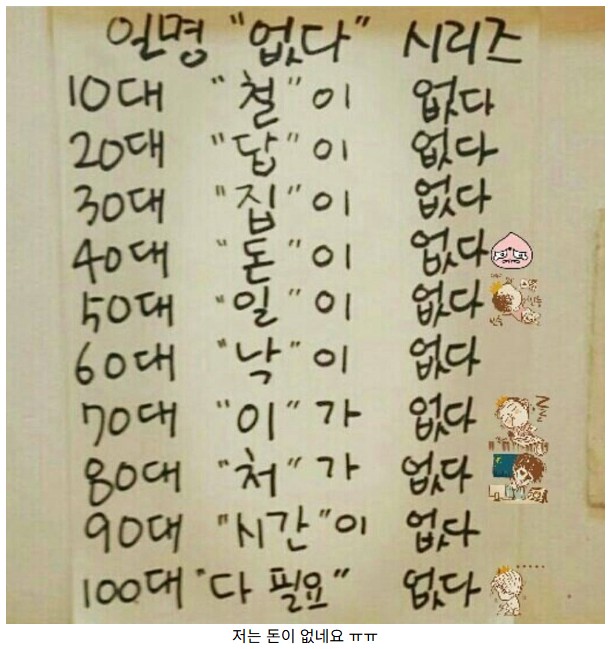 일명 "없다" 시리즈
10대 "철"이 없다
20대 "답"이 없다
30대 "집"이 없다
40대 "돈"이 없다
50대 "일"이 없다
60대 "낙"이 없다
70대 "이"가 없다
80대 "처"가 없다
90대 "시간"이 없다
100대 "다 필요" 없다
저는 돈이 없네요 ㅠㅠ